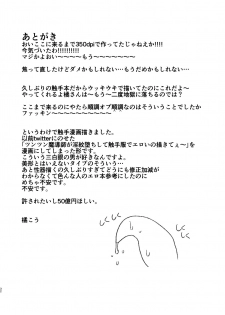 あとがき
おいここに来るまで350dpiで作ってたじゃねえか!!!!
今気づいたわ!!!!!!!!!!!
マジかよおい〜〜〜〜〜もう〜〜〜〜〜〜〜
焦って直したけどダメかもしれない…もうだめかもしれない…
久しぶりの触手本だからウッキウキで描いてたのに…
やってくれるよ橘さんは〜もう〜二度地獄に落ちるのでは??
ここまで来るのにやたら順調オブ順調なのはそういうことでしたか
ファッキン〜〜〜〜〜〜〜〜〜〜〜
というわけで触手漫画描きました
以前twitterにのせた
「ツンツン魔導師が淫紋堕ちして触手服でエロいの描きてぇ〜」を
漫画にしてしまった形です。
こういう三白眼の男が好きなんですよ。
美形とはいえないタイプのそういう…
あと性器描くの久しぶりすぎてどうにも修正加減が
わからなくて色んな人のエロ本参考にしたのに
めちゃ不安です。
不安です。
許されたいし50億円ほしい。
橘こう